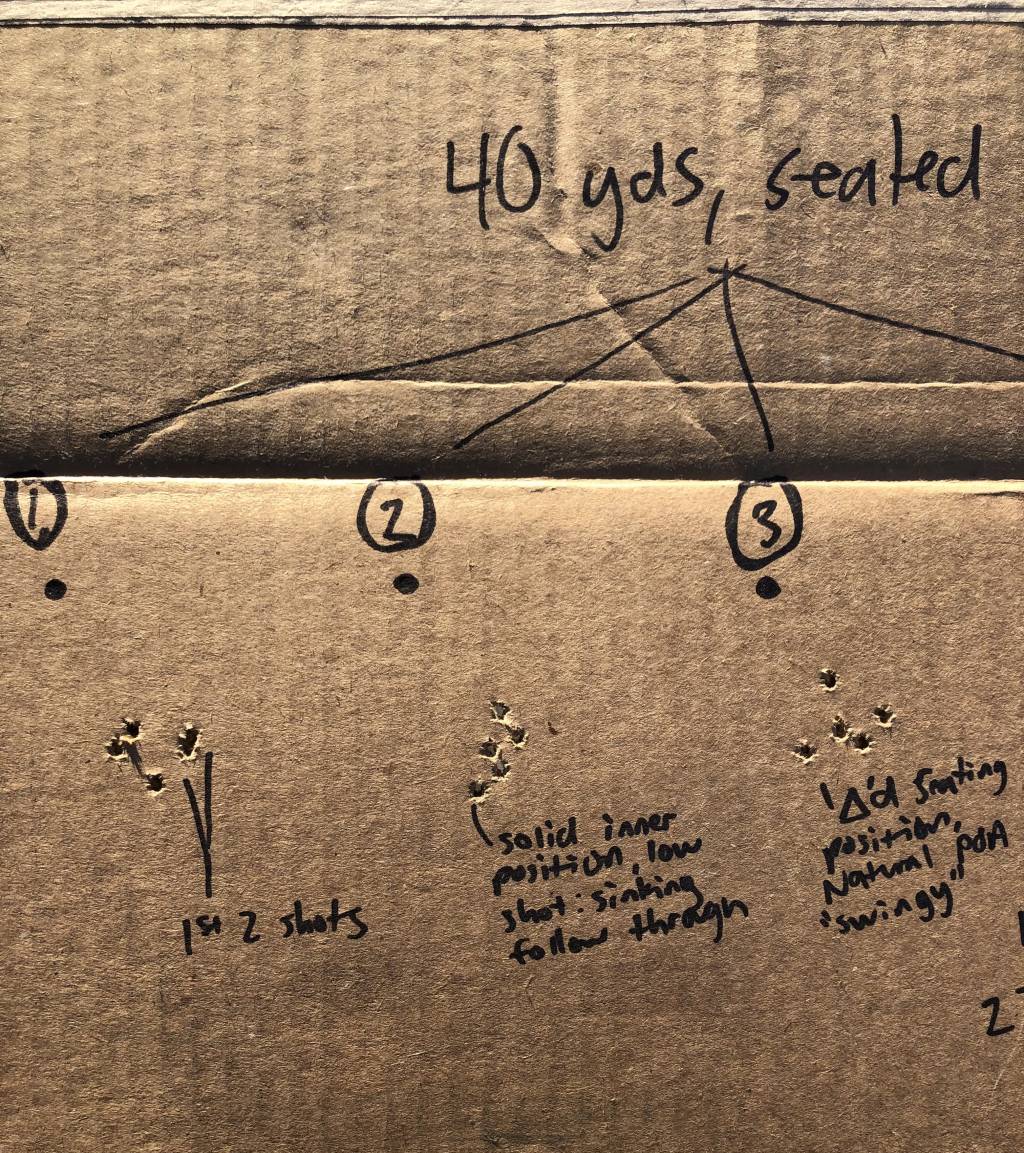 40 yds, seated
1.
2
3
1st 2 shots
solid inner
position, low
shot: sinking
follow through
Δ'd seating
position,
Natural poA
"swingy"
2